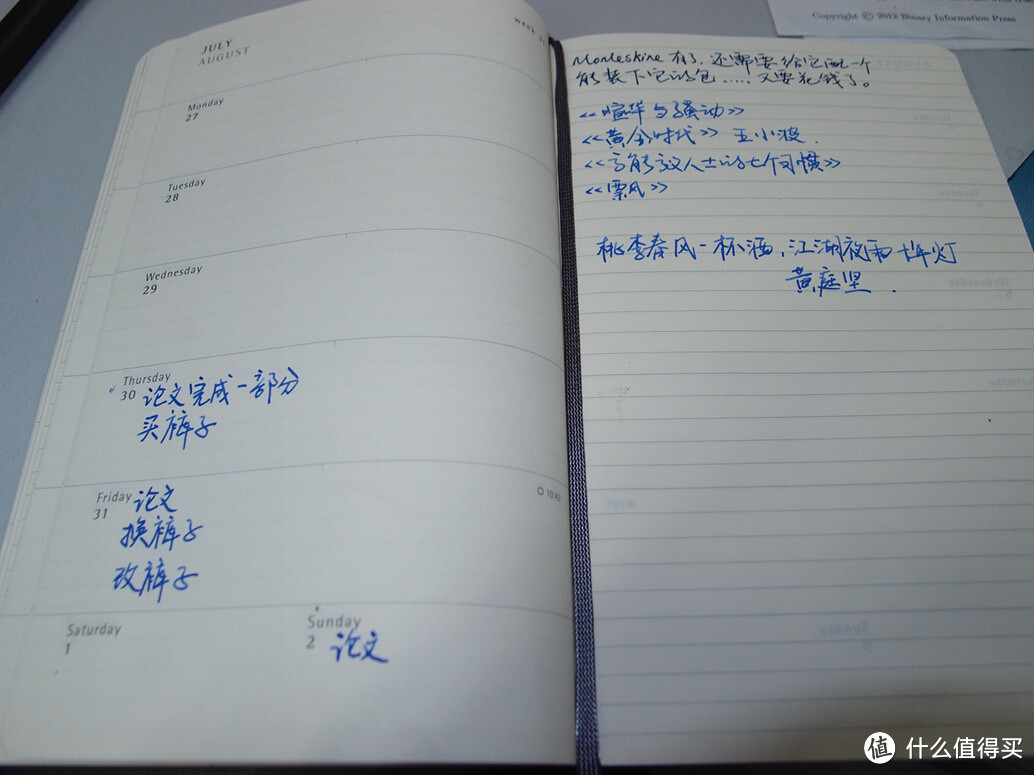 JULY
AUGUST
week 31
Monday
27
Tuesday
28
Wednesday
29
Thursday
30 论文完成一部分
买裤子
Friday 论文
31
换裤子
改裤子
10:43
Saturday
1
Sunday
2 论文
Copyright © 2012 Binary Information Press
Moleskine 有了,还需要给它配一个
能装下它的包……又要花钱了。
《喧哗与骚动》
《黄金时代》 王小波.
《高能效人士的七个习惯》
《飘风》
桃李春风一杯酒,江湖夜雨十年灯
黄庭坚.
值 什么值得买